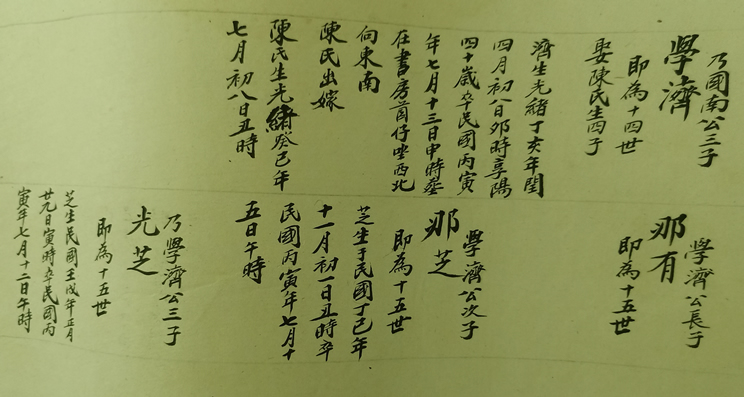 乃國南公三子
學濟
即為十四世
娶陳氏生四子
濟生光緒丁亥年閏
四月初八日夘時享陽
四十歲卒民國丙寅
年七月十三日申時葬
在書房茴仔坐西北
向東南
陳氏出嫁
陳氏生光緒癸巳年
七月初八日丑時
學濟公長子
那有
即為十五世
學濟公次子
那芝
即為十五世
芝生于民國丁巳年
十一月初一日丑時卒
民國丙寅年七月十
五日午時
乃學濟公三子
光芝
即為十五世
芝生民國壬戌年正月
廿九日寅時卒民國丙
寅年七月十二日午時